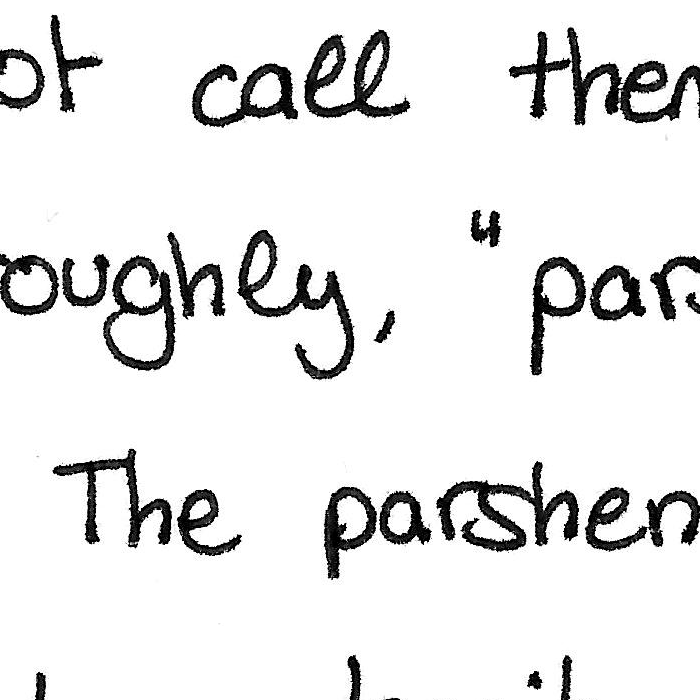 ot call them
roughly, "pars
The parshen